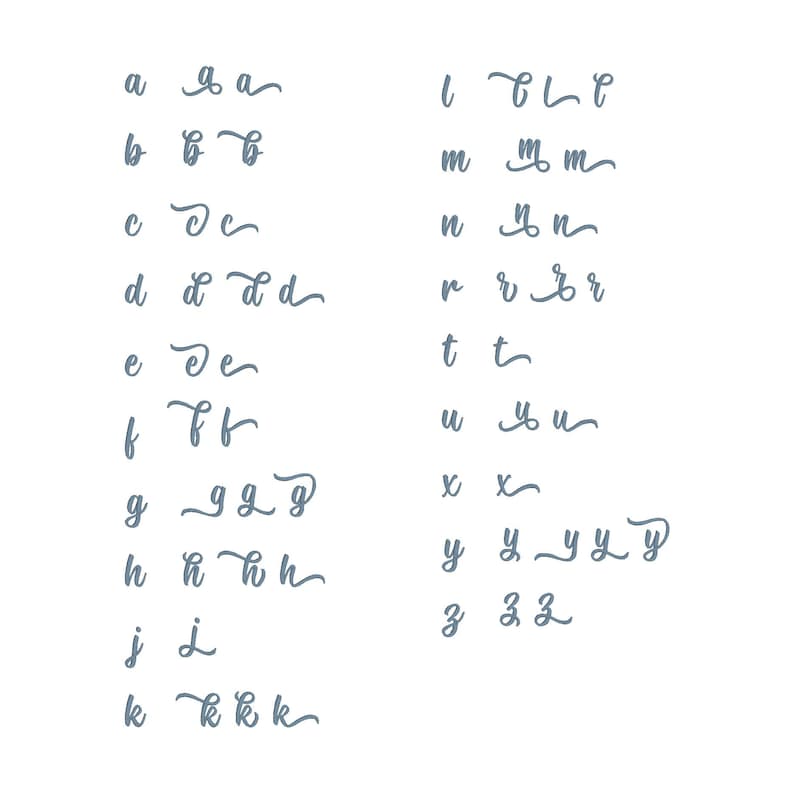 a a a
b b b
c c c
d d d d
e e e
f f f
g g g g
h h h h
j j
k k k k
l l l l
m m m
n n n
r r r r
t t
u u u
x x
y y y y y
z z z